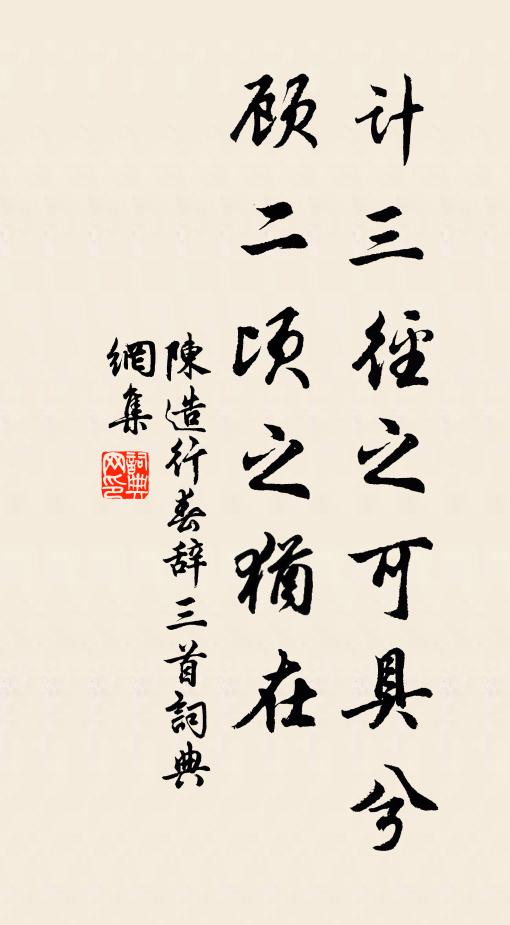 计三徑之可具兮
顾二顷之猶在
陳造行春辞三首詞典
網集
詞典网印